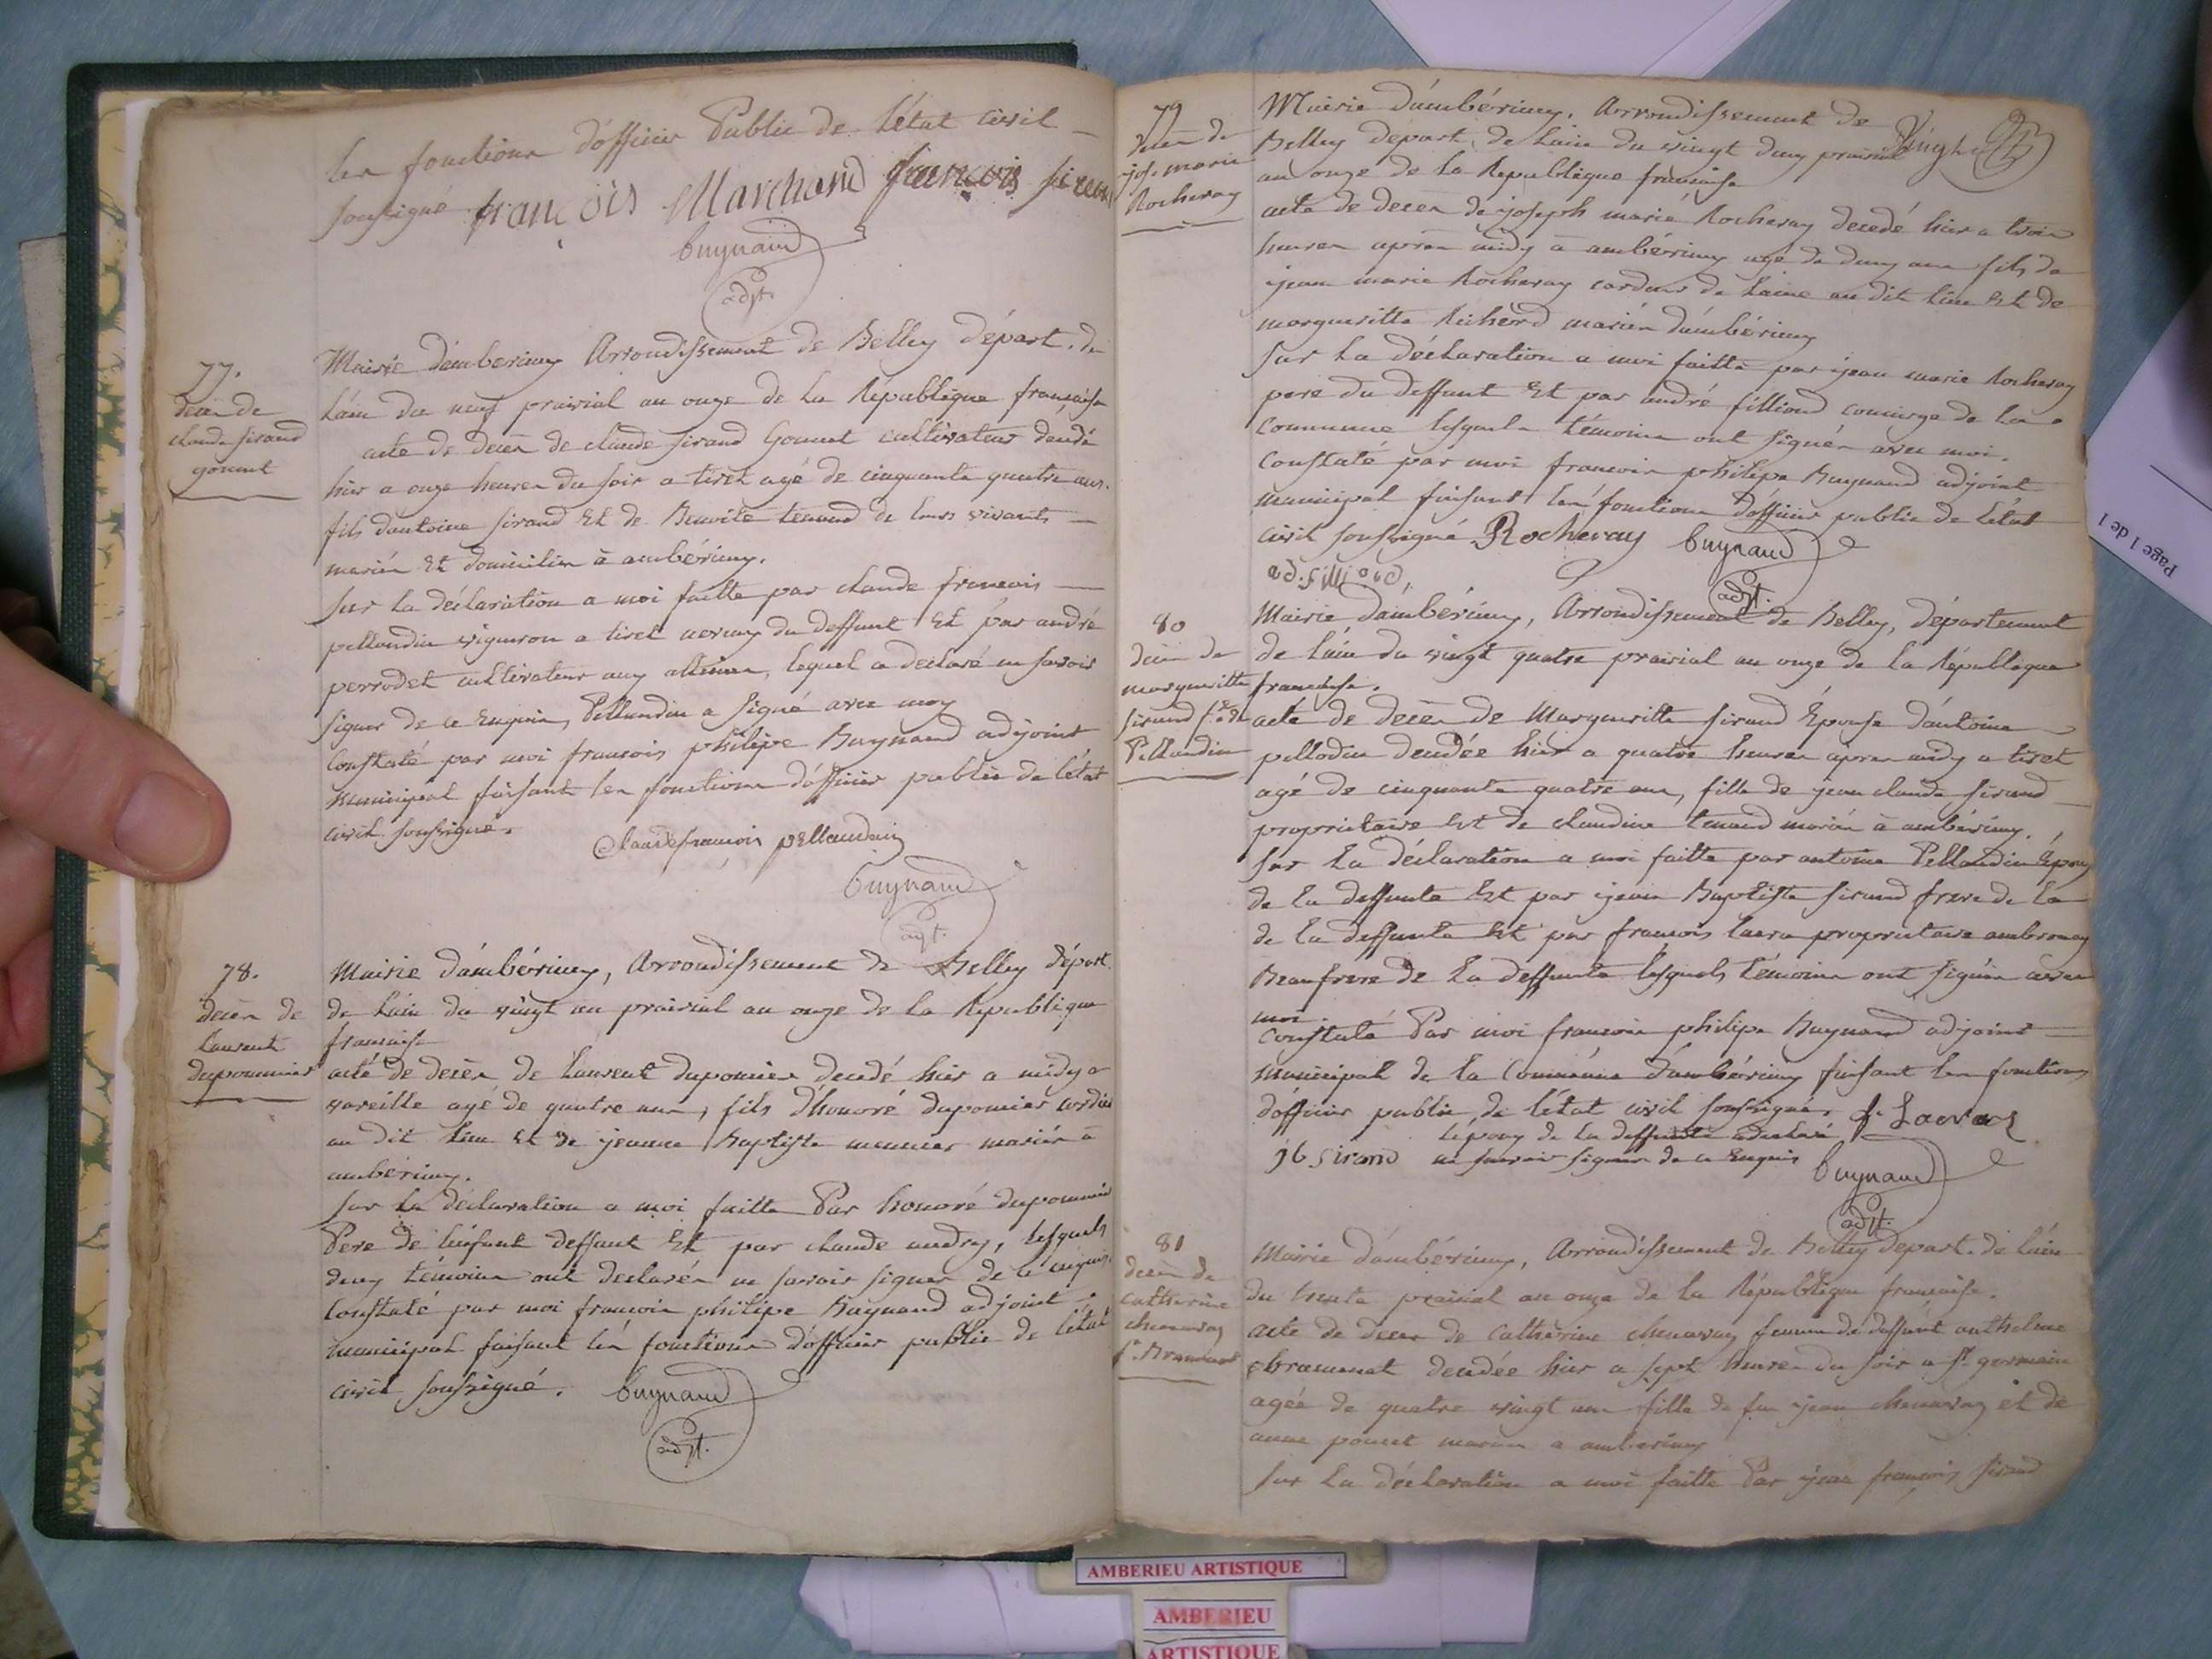 les fonctions d'officier Public de l'état civil
soussigné françois Marchand françois sirand
buynand
adjt.
77.
décès de
claude sirand
gonnet
Mairie d'amberieux Arrondissement de Belley départ. de
l'ain du neuf prairial an onze de la République française
acte de décès de claude sirand Gonnet cultivateur decedé
hier a onze heures du soir a tiret agé de cinquante quatre ans.
fils d'antoine sirand Et de Benoite tenand de leurs vivants
mariés Et domiciliés à ambérieux.
sur la déclaration a moi faitte par claude françois
pellaudin vigneron a tiret neveux du deffunt Et par andré
perrodet cultivateur aux allimes, lequel a declaré ne savoir
signer de ce Enquis, Pellaudin a signé avec moy
Constaté par moi françois philipe Buynand adjoint
municipal faisant les fonctions d'officier public de l'état
civil soussigné. Claude françois pellaudin
buynand
adjt.
78.
décès de
laurent
dupommier
Mairie d'ambérieux, Arrondissement de Belley départ.
de l'ain du vingt un prairial an onze de la République
française
acte de décès de Laurent dupomier decedé hier a midy a
vareille agé de quatre ans, fils d'honoré dupomier
au dit lieu Et de jeanne Baptiste meunier mariés à
ambérieux.
sur la déclaration a moi faitte Par honoré dupommier
Pere de l'enfant deffunt Et par claude audry, lesquels
deux témoins ont declarés ne savoir signer de ce enquis.
Constaté par moi françois philipe Buynand adjoint
municipal faisant les fonctions d'officier public de l'état
civil soussigné. buynand
adjt.
79
décès de
jos. marie
Rocheray
Mairie d'ambérieux, Arrondissement de
Belley départ. de l'ain du vingt deux prairial
an onze de la République française
acte de décès de joseph marie Rocheray decedé hier a trois
heures après midy à ambérieux agé de deux ans fils de
jean marie Rocheray cardeur de laine au dit lieu Et de
margueritte Richerd mariés d'ambérieux
sur la déclaration a moi faitte par jean marie Rocheray
pere du deffunt Et par andré filliod concierge de la
commune lesquels témoins ont signés avec moi.
Constaté par moi françois philipe Buynand adjoint
municipal faisant les fonctions d'officier public de l'état
civil soussigné Rocheray buynand
ad. filliod, adjt.
80
décès de
margueritte
sirand fe. de
Pellaudin
Mairie d'ambérieux, Arrondissement de Belley, département
de l'ain du vingt quatre prairial an onze de la République
française.
acte de décès de Margueritte sirand Epouse d'antoine
pellodin decedée hier a quatre heures après midy a tiret
agé de cinquante quatre ans, fille de jean claude sirand
proprietaire Et de claudine tenand mariés à ambérieux.
sur la déclaration a moi faitte par antoine Pellaudin Epoux
de la deffunte Et par jean Baptiste sirand frere de la
de la deffunte Et par françois lacra proprietaire ambronay
Beaufrere de la deffunte lesquels témoins ont signés avec
moi
Constaté Par moi françois philipe Buynand adjoint
municipal de la Commune d'ambérieux faisant les fonctions
d'officier public de l'état civil soussignés
l'époux de la deffunte a declaré
jb sirand ne savoir signer de ce Enquis buynand
adjt.
81
décès de
catherine
chenavay
fe. Bramerat
Mairie d'ambérieux, Arrondissement de Belley départ. de l'ain
du trente prairial an onze de la République française.
acte de deces de catherine chenavay femme de deffunt anthelme
bramerat decedée hier a sept heures du soir a st. germain
agée de quatre vingt ans fille de feu jean chenavay et de
anne poncet mariés a amberieux
sur la déclaration a moi faitte Par jean françois sirand
Page 1 de 1
AMBERIEU ARTISTIQUE
AMBERIEU
ARTISTIQUE